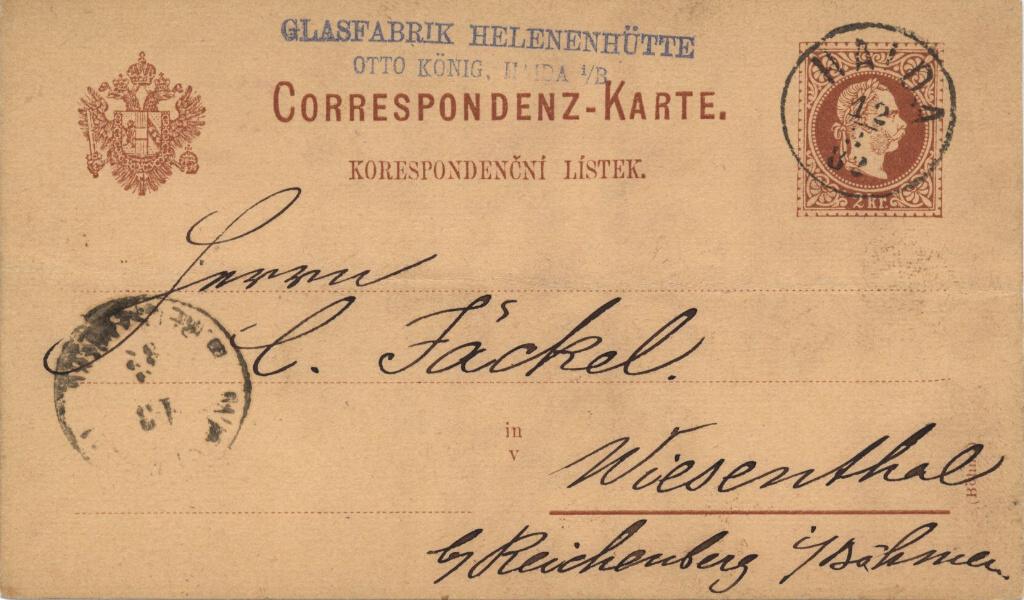 GLASFABRIK HELENENHÜTTE
OTTO KÖNIG, HAIDA i/B
CORRESPONDENZ-KARTE.
KORESPONDENČNÍ LÍSTEK.
HAIDA
12
2 kr.
Herrn
C. Fäckel.
13
in
v
Wiesenthal
(Böhm
b/Reichenberg i/Böhmen.